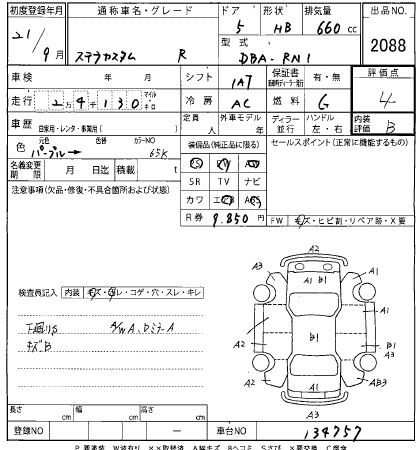 初度登録年月 通称車名・グレード ドア 形状 排気量 出品NO
21/9月 ステラカスタム R 5 HB 660cc 2088
型式 DBA-RN1
車検 年 月 シフト 1A7 保証書 有・無 評価点
走行 2万4千130 マイル キロ 冷房 AC 燃料 G 4
車歴 自家用・レンタ・事業用( ) 定員 人 外車モデル 年 ディラー 並行 ハンドル 左・右 内装評価 B
色 元色 パープル 色替 カラーNO 65K 装備品(純正品に限る) セールスポイント(正常に機能するもの)
名義変更期限 月 日迄 積載 t PS PW
SR TV ナビ
注意事項(欠品・修復・不具合箇所および状態) カワ エアB ABS
R券 9,850円 FW キズ・ヒビ割・リペア跡・X要
A2
A3 A1
A1 B1
検査員記入 内装 キズ・汚レ・コゲ・穴・スレ・キレ
下廻りS A/WA、DミラーA
キズB
A2 B1 A1
A2 A1 AB3
A3
長さ cm 幅 cm 高さ cm
登録NO － 車台NO 134757
P要塗装 W波有り XX取替済 A線キズ Bヘコミ Sサビ X要交換 C腐食